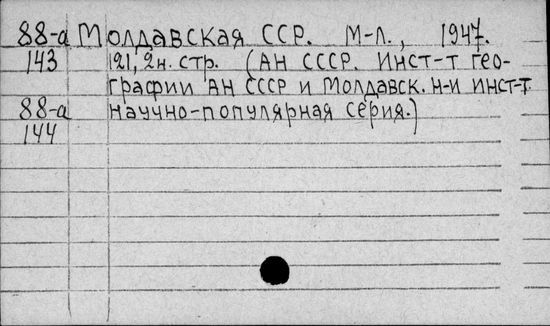 88-а Молдавская ССР. М-Л., 1947.
143 121, 2н. стр. (АН СССР. Инст-т гео-
графии АН СССР и Молдавск. н-и инст-т.
88-а научно-популярная серия.)
144